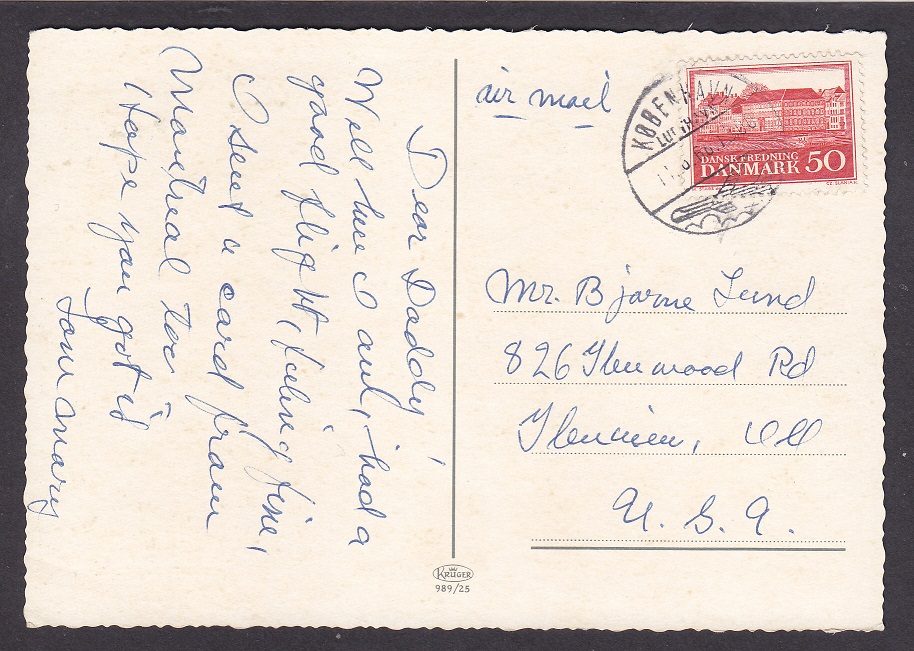 Dear Daddy!
Well here I am, had a
good flight, feeling fine,
I sent a card from
Montreal too
Hope you got it
Your Mary
air mail
KØBENHAVN
LUFTHAVN
DANSK FREDNING
DANMARK 50
CZ. SLANIA
Mr. Bjarne Lund
826 Glenwood Rd
Glenview, Ill
U. S. A.
KRÜGER
989/25